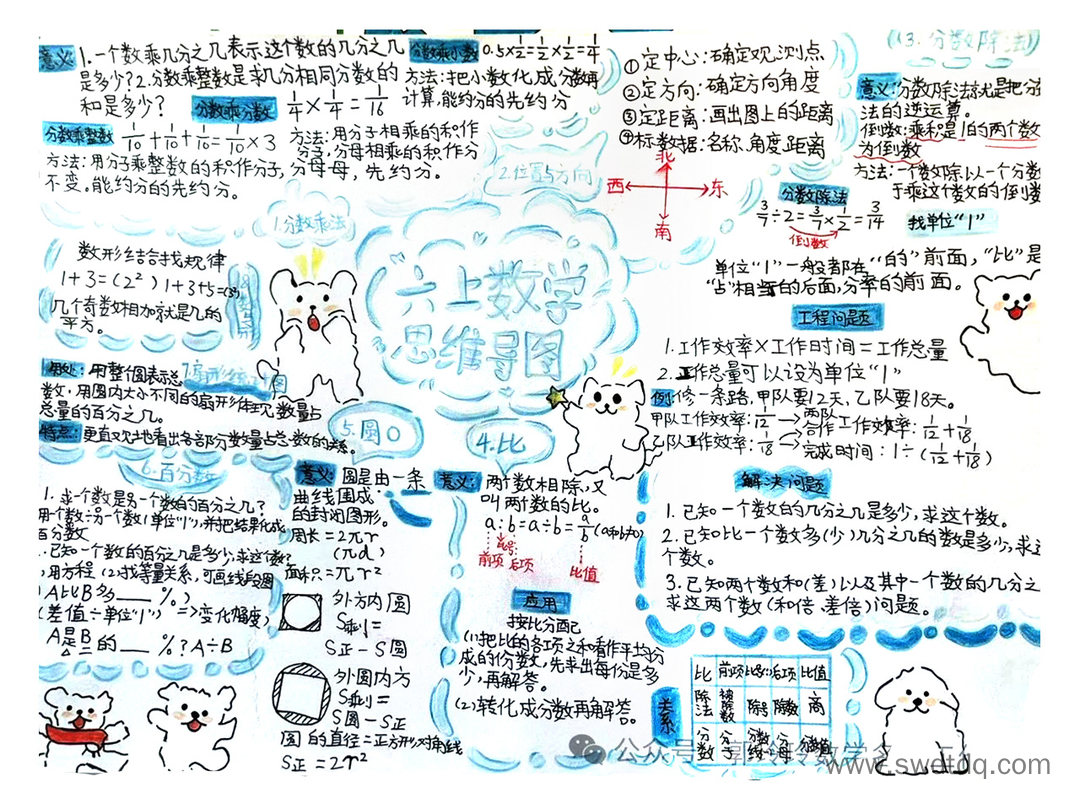 六上数学
思维导图
1.分数乘法
意义
1.一个数乘几分之几表示这个数的几分之几
是多少?2.分数乘整数是求几分相同分数的
和是多少?
分数乘分数
1/4×1/4=1/16
分数乘整数
1/10+1/10+1/10=1/10×3
方法:用分子乘整数的积作分子,分母
不变。能约分的先约分。
方法:用分子相乘的积作
分子,分母相乘的积作分
母,先约分。
分数乘小数
0.5×1/2=1/2×1/2=1/4
方法:把小数化成分数再
计算,能约分的先约分
2.位置与方向
①定中心:确定观测点
②定方向:确定方向角度
③定距离:画出图上的距离
④标数据:名称、角度、距离
北
西
东
南
(3.分数除法)
意义:分数除法就是把分
法的逆运算。
倒数:乘积是1的两个数
为倒数
方法:一个数除以一个分数
于乘这个数的倒数
分数除法
3/7÷2=3/7×1/2=3/14
倒数
找单位“1”
单位“1”一般都在“的”前面,“比”是
“占”相当的后面,分率的前面。
工程问题
1.工作效率×工作时间=工作总量
2.工作总量可以设为单位“1”
例:修一条路,甲队要12天,乙队要18天。
甲队工作效率:1/12
乙队工作效率:1/18
两队
合作工作效率:1/12+1/18
完成时间:1÷(1/12+1/18)
解决问题
1.已知一个数的几分之几是多少,求这个数。
2.已知比一个数多(少)几分之几的数是多少,求这
个数。
3.已知两个数和(差)以及其中一个数的几分之
求这两个数(和倍、差倍)问题。
数形结合找规律
1+3=(2²) 1+3+5=(3²)
几个奇数相加就是几的
平方。
用处:用整圆表示总
数,用圆内大小不同的扇形体现数量占
总量的百分之几。
特点:更直观地看出各部分数量占总数的关系。
6.百分数
1.求一个数是另一个数的百分之几?
用一个数÷另一个数(单位“1”),并把结果化成
百分数
已知一个数的百分之几是多少,求这个数?
用方程 (2)找等量关系,可画线段图
A比B多___%)
(差值÷单位“1”)=>变化幅度)
A是B的___%?A÷B
5.圆
意义:圆是由一条
曲线围成
的封闭图形。
周长=2πr
(πd)
面积=πr²
外方内圆
S剩=
S正-S圆
外圆内方
S剩=
S圆-S正
圆的直径=正方形对角线
S正=2r²
4.比
意义:两个数相除,又
叫两个数的比。
a:b=a÷b=a/b(a≠0)
前项
比号
后项
比值
应用
按比分配
(1)把比的各项之和看作平均分
成的份数,先求出每份是多
少,再解答。
(2)转化成分数再解答。
关系
比 前项 比号: 后项 比值
除法 被除数 除号 除数 商
分数 分子 分数线 分母 分数值
公众号
www.swetdq.com